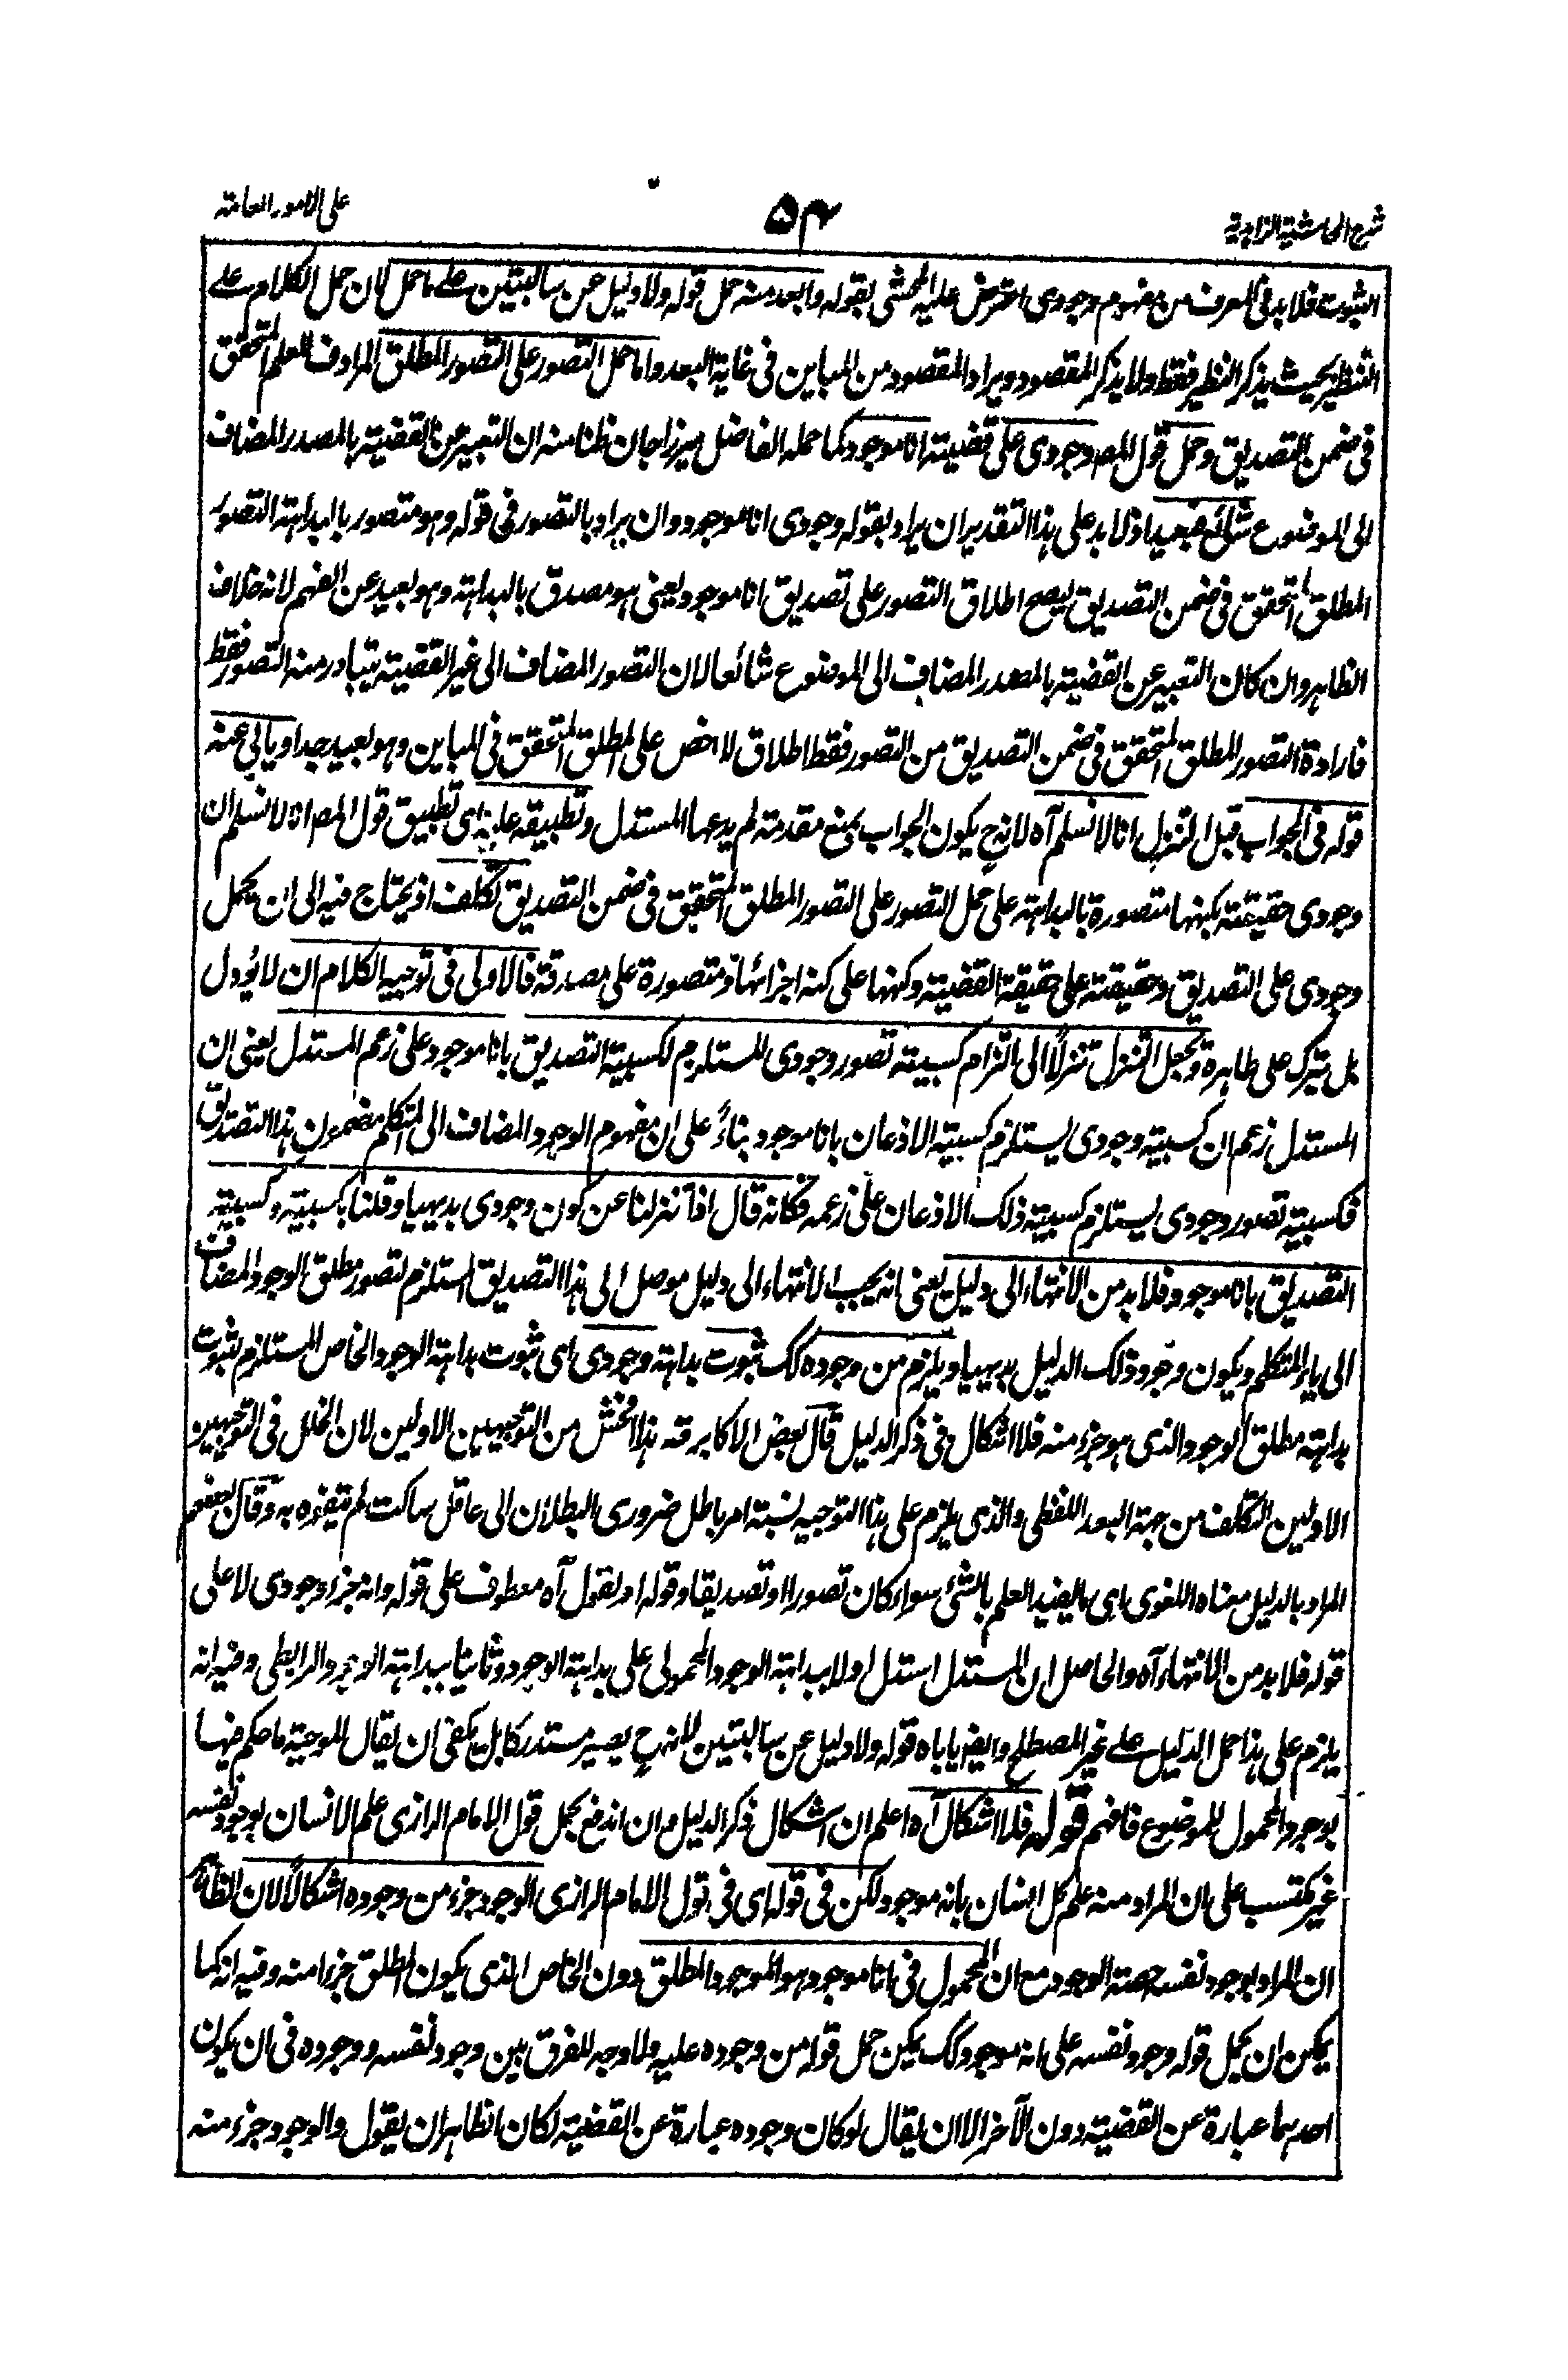 شرح الحاشية الزاهدية
۵۴
على الامور العامة
الثبوت فلا بد فى المعرف من مفهوم وجودى اعترض عليه المحشى بقوله وابعد منه حمل قوله ولا دليل عن سالبتين على ما حمل لان حمل الكلام على
التنظير بحيث يذكر النظير فقط ولا يذكر المقصود ويراد المقصود من المباين فى غاية البعد واما حمل التصور على التصور المطلق المرادف للعلم المتحقق
فى ضمن التصديق وحمل قول المص وجودى على قضية انا موجود كما حمله الفاضل ميرزاجان ظنا منه ان التعبير عن القضية بالمصدر المضاف
الى الموضوع شائع فبعيد اذ لا بد على هذا التقدير ان يراد بقوله وجودى انا موجود وان يراد بالتصور فى قوله وهو متصور بالبداهة التصور
المطلق المتحقق فى ضمن التصديق ليصح اطلاق التصور على تصديق انا موجود يعنى هو مصدق بالبداهة وهو بعيد عن الفهم لانه خلاف
الظاهر وان كان التعبير عن القضية بالمصدر المضاف الى الموضوع شائعا لان التصور المضاف الى غير القضية يتبادر منه التصور فقط
فارادة التصور المطلق المتحقق فى ضمن التصديق من التصور فقط اطلاق لاخص على المطلق المتحقق فى المباين وهو بعيد جدا ويابى عنه
قوله فى الجواب قبل التنزل انا لا نسلم آه لانه ح يكون الجواب بمنع مقدمة لم يدعها المستدل وتطبيقه عليه اى تطبيق قول المص انا لا نسلم ان
وجودى حقيقته بكنهها متصورة بالبداهة على حمل التصور على التصور المطلق المتحقق فى ضمن التصديق تكلف اذ يحتاج فيه الى ان يحمل
وجودى على التصديق وحقيقته على حقيقة القضية وكنهها على كنه اجزائها ومتصورة على مصدقة فالاولى فى توجيه الكلام ان لا يؤول
بل يترك على ظاهره ويجعل التنزل تنزلا الى التزام كسبية تصور وجودى المستلزم لكسبية التصديق بانا موجود على زعم المستدل يعنى ان
المستدل زعم ان كسبية وجودى يستلزم كسبية الاذعان بانا موجود بناءً على ان مفهوم الوجود المضاف الى المتكلم مضمون هذا التصديق
فكسبية تصور وجودى يستلزم كسبية ذلك الاذعان على زعمه فكانه قال اذا تنزلنا عن كون وجودى بديهيا وقلنا بكسبيته وكسبية
التصديق بانا موجود فلا بد من الانتهاء الى دليل يعنى انه يجب الانتهاء الى دليل موصل الى هذا التصديق المستلزم لتصور مطلق الوجود المضاف
الى ياء المتكلم ويكون وجود ذلك الدليل بديهيا ويلزم من وجوده كك ثبوت بداهة وجودى اى ثبوت بداهة الوجود الخاص المستلزم لثبوت
بداهة مطلق الوجود الذى هو جزء منه فلا اشكال فى ذكر الدليل قال بعض الاكابر قد هذا افحش من التوجيهين الاولين لان الخلل فى التوجيهين
الاولين التكلف من جهة البعد اللفظى والذى يلزم على هذا التوجيه نسبة امر باطل ضرورى البطلان الى عاقل ساكت لم يتفوه به وقال بعضهم
المراد بالدليل معناه اللغوى اى ما يفيد العلم بالشئ سواء كان تصورا او تصديقا وقوله او نقول آه معطوف على قوله وانه جزء وجودى لا على
قوله فلا بد من الانتهاء آه والحاصل ان المستدل استدل اولا ببداهة الوجود المحمولى على بداهة الوجود وثانيا ببداهة الوجود الرابطى وفيه انه
يلزم على هذا حمل الدليل على غير المصطلح وايضا ياباه قوله ولا دليل عن سالبتين لانه ح يصير مستدركا بل يكفى ان يقال الموجبة ما حكم فيها
بوجود المحمول للموضوع فافهم قوله فلا اشكال آه اعلم ان اشكال ذكر الدليل وان اندفع بحمل قول الامام الرازى علم الانسان بوجود نفسه
غير مكتسب على ان المراد منه علم كل انسان بانه موجود لكن فى قوله اى فى قول الامام الرازى الوجود جزء من وجوده اشكالا لان الظاهر
ان المراد بوجود نفسه حصة الوجود مع ان المحمول فى انا موجود هو الموجود المطلق دون الخاص الذى يكون المطلق جزءا منه وفيه انه كما
يمكن ان يحمل قوله وجود نفسه على انه موجود كك يمكن حمل قوله من وجوده عليه ولا وجه للفرق بين وجود نفسه ووجوده فى ان يكون
احدهما عبارة عن القضية دون الآخر الا ان يقال لو كان وجوده عبارة عن القضية لكان الظاهر ان يقول والوجود جزء منه